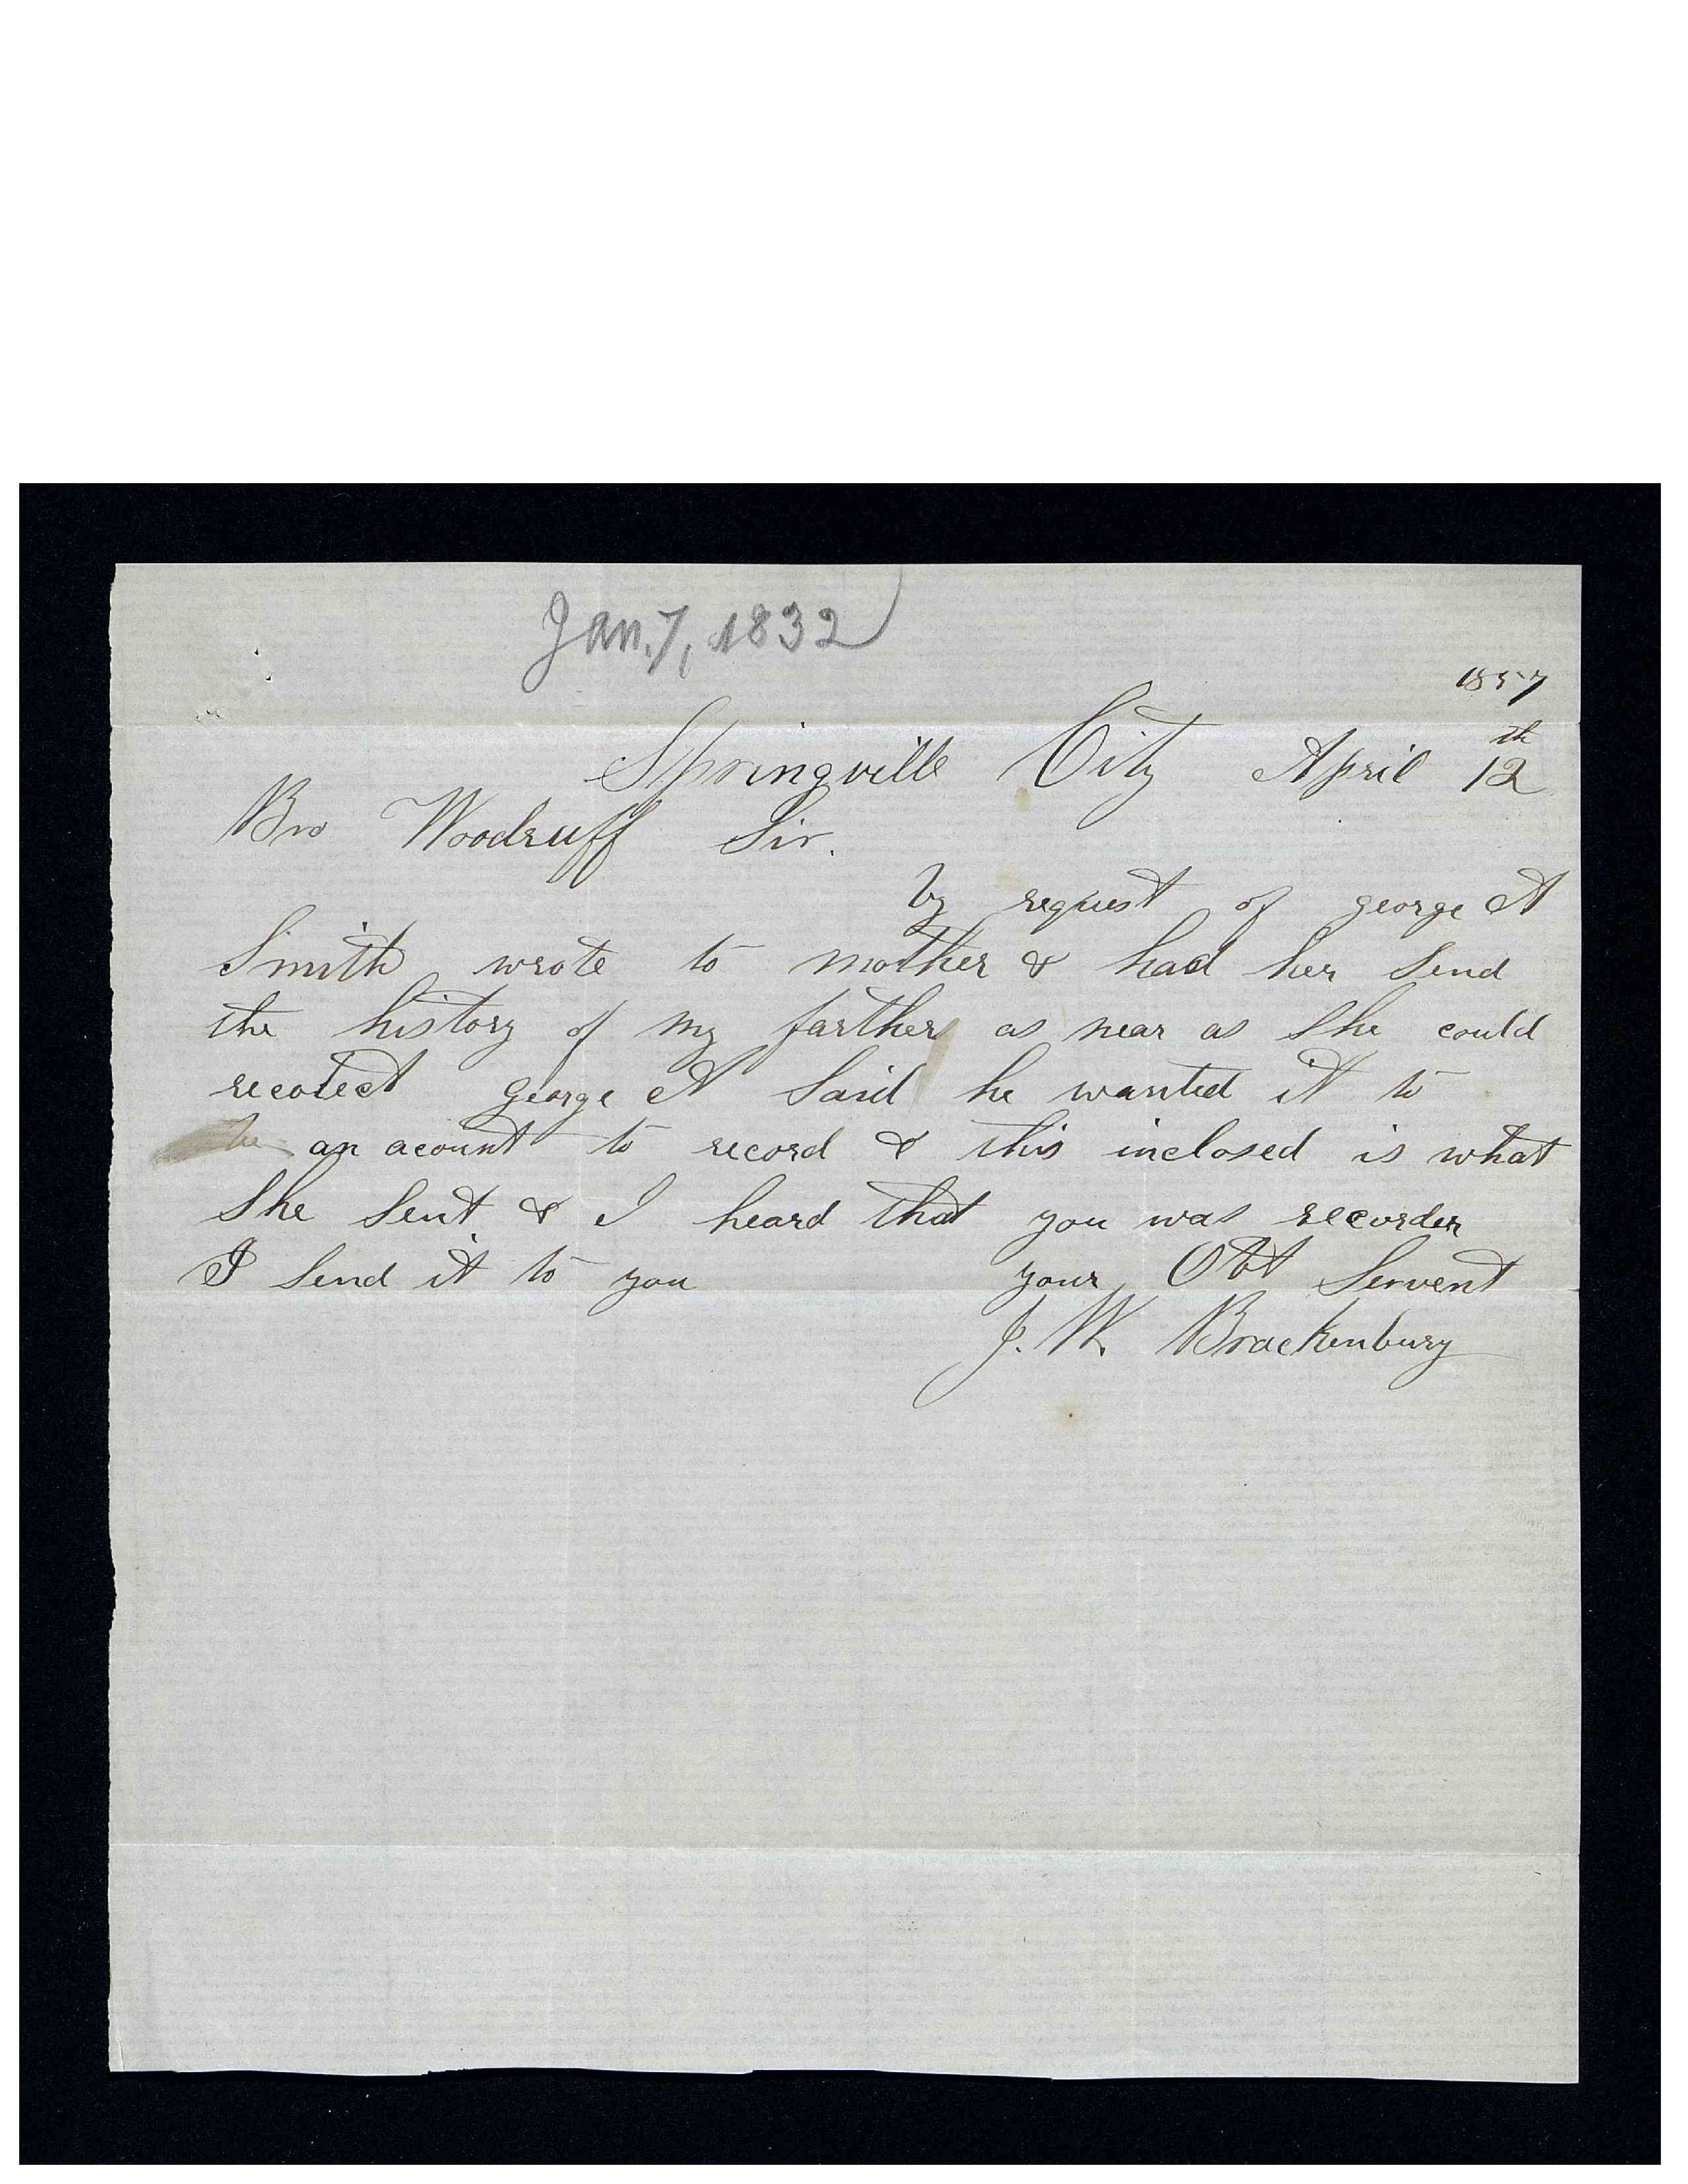 Jan. 7, 1832
1857
Springville City April 12th
Bro Woodruff Sir.
by request of george A
Smith wrote to mother & had her Send
the history of my farther as near as She could
recolect george A Said he wanted it to
be an acount to record & this inclosed is what
She Sent & I heard that you was recorder
I Send it to you your Obt Servent
J. W. Brackenbury